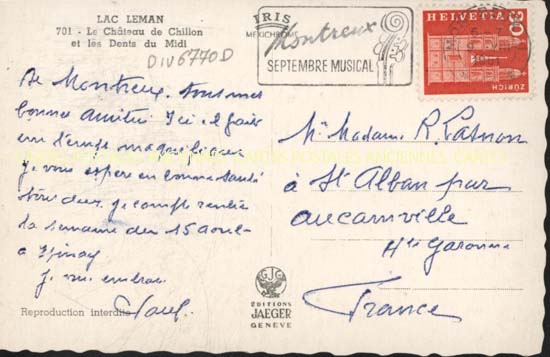 LAC LEMAN
701 - Le Château de Chillon
et les Dents du Midi
DIV6770D
IRIS
MEXICHROME
Montreux
SEPTEMBRE MUSICAL
HELVETIA
30
ZÜRICH
De Montreux. tous mes
bonnes amitiés Ici il fait
un temps magnifique
Je vous espère en bonne santé
tous deux je compte rentrer
la semaine du 15 août
à
Je vous embrasse
Mr Madame R.
à St Alban par
aucamville
Hte Garonne
France
GJG
ÉDITIONS
JAEGER
GENÈVE
Reproduction interdite